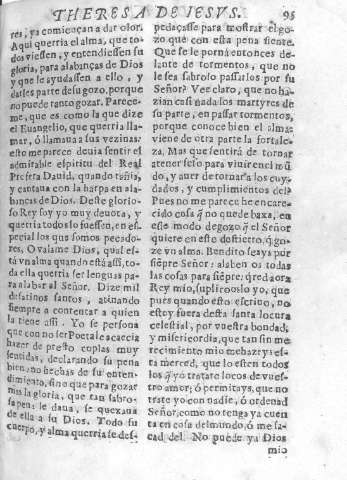 THERESA DE IESVS. 95
res, ya comiençan a dar olor.
Aqui querria el alma, que to-
dos viessen, y entendiessen su
gloria, para alabanças de Dios
y que le ayudassen a ello, y
darles parte de su gozo, porque
no puede tanto gozar. Parece-
me, que es como la que dize
el Euangelio, que querria lla-
mar, ó llamaua a sus vezinas.
esto me parece deuia sentir el
admirable espiritu del Real
Profeta Dauid, quando tañia,
y cantaua con la harpa en ala-
banças de Dios. Deste glorio-
so Rey soy yo muy deuota, y
querria todos lo fuessen, en es-
pecial los que somos pecado-
res. O valame Dios, qual es-
tà vn alma quando està assi, to-
da ella querria ser lenguas pa-
ra alabar al Señor. Dize mil
desatinos santos, atinando
siempre a contentar a quien
la tiene assi. Yo se persona
que con no ser Poeta le acaecia
hazer de presto coplas muy
sentidas, declarando su pena
bien, no hechas de su enten-
dimiento, sino que para gozar
mas la gloria, que tan sabro-
sa pena le daua, se quexaua
de ella a su Dios. Todo su
cuerpo, y alma querria se des-
pedaçasse para mostrar el go-
zo que con esta pena siente.
Que se le pornà entonces de-
lante de tormentos, que no
le sea sabroso passarlos por su
Señor? Vee claro, que no ha-
zian casi nada los martyres de
su parte, en passar tormentos,
porque conoce bien el alma
viene de otra parte la fortale-
za. Mas que sentirá de tornar
a tener seso para viuir en el mũ
do, y auer de tornar a los cuy-
dados, y cumplimientos dèl?
Pues no me parece he en care-
cido cosa q̃ no quede baxa, en
este modo de gozo q̃ el Señor
quiere en este destierro, q̃ go-
ze vn alma. Bendito seays por
siẽpre Señor: alaben os todas
las cosas para siẽpre: q̃red aora
Rey mio, suplicooslo yo, que
pues quando esto escriuo, no
estoy fuera desta santa locura
celestial, por vuestra bondad,
y misericordia, que tan sin me
recimiento mio me haz ys es-
ta merced, que lo esten todos
los q̃ yo tratare locos de vues-
tro amor; ó permitays, que no
trate yo con nadie, ó ordenad
Señor, como no tenga ya cuen
ta en cosa del mundo, ó me sa-
cad del. No puede ya Dios
mio